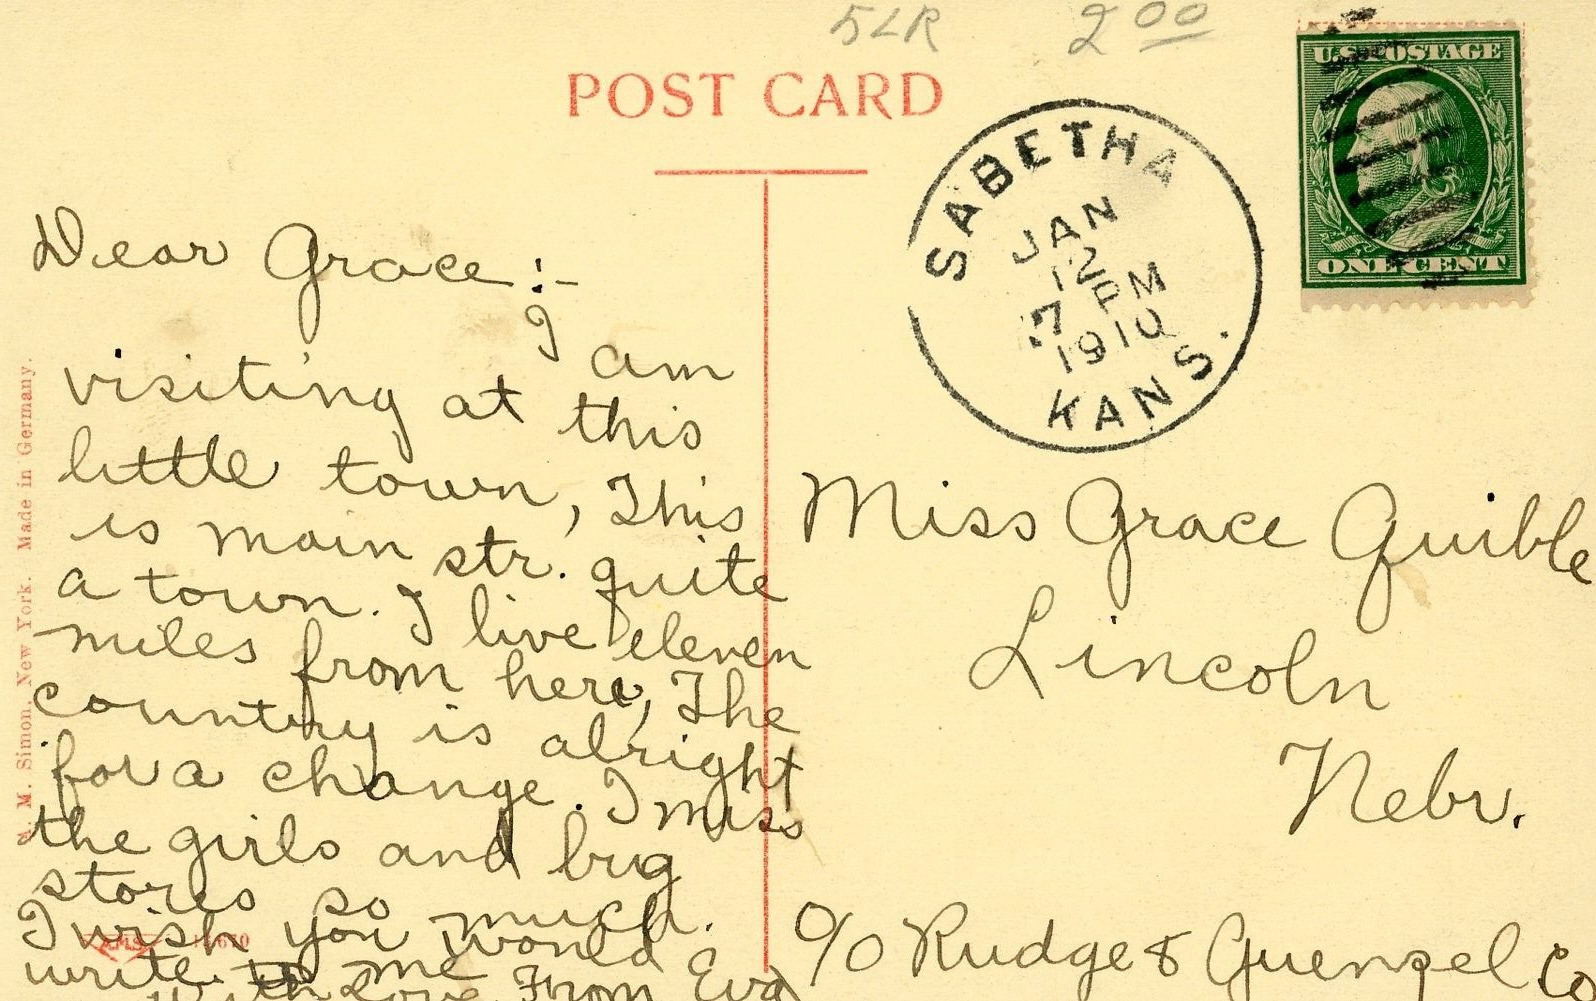 5LR 2 00
POST CARD
U.S. POSTAGE
ONE CENT
SABETHA
JAN
12
7 PM
1910
KANS.
Dear Grace:-
I am
visiting at this
little town, This
is main str. quite
a town. I live eleven
miles from here, The
country is alright
for a change. I miss
the girls and big
stores so much.
I wish you would
write to me
With Love From Eva
Miss Grace Quible
Lincoln
Nebr.
c/o Rudge & Guenzel Co
M. Simon, New York. Made in Germany.